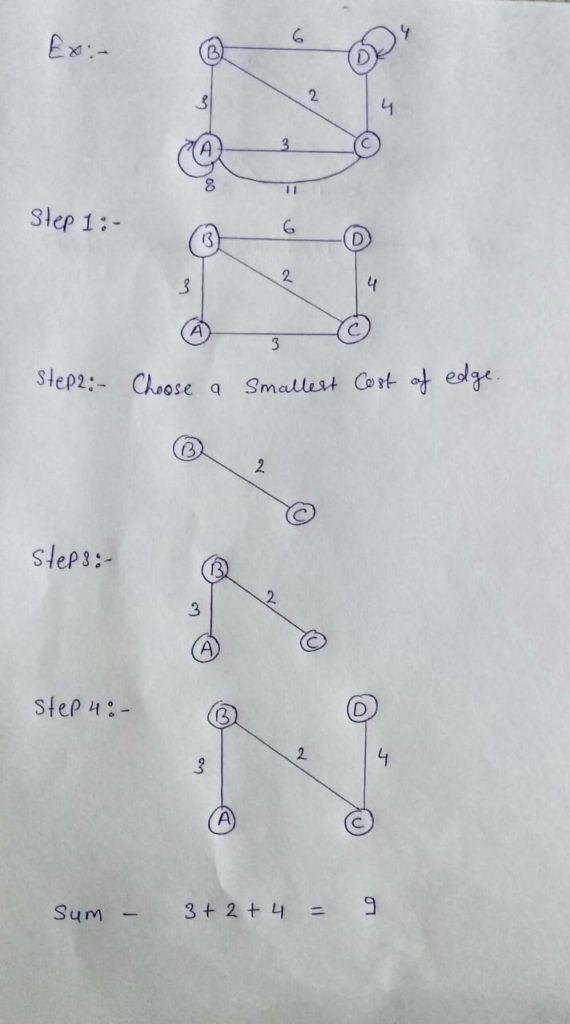 Ex:-
6
4
B
D
3
2
4
A
3
C
8
11
Step 1:-
6
B
D
3
2
4
A
C
3
Step2:- Choose a Smallest Cost of edge.
B
2
C
Step3:-
B
3
2
A
C
Step 4:-
B
D
3
2
4
A
C
Sum - 3 + 2 + 4 = 9